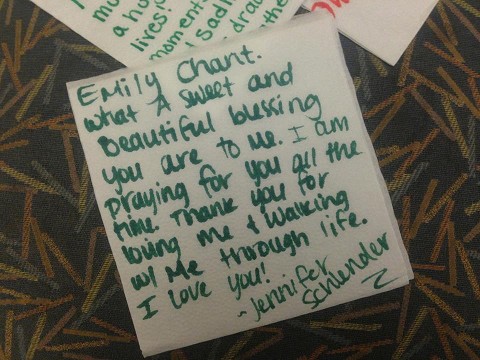 mu
a hu
lives!
moments
Sadl
drau
the
Emily Chant.
What A sweet and
Beautiful blessing
you are to me. I am
praying for you all the
time. Thank you for
loving me & walking
w/ me through life.
I love you!
~Jennifer
Schlender